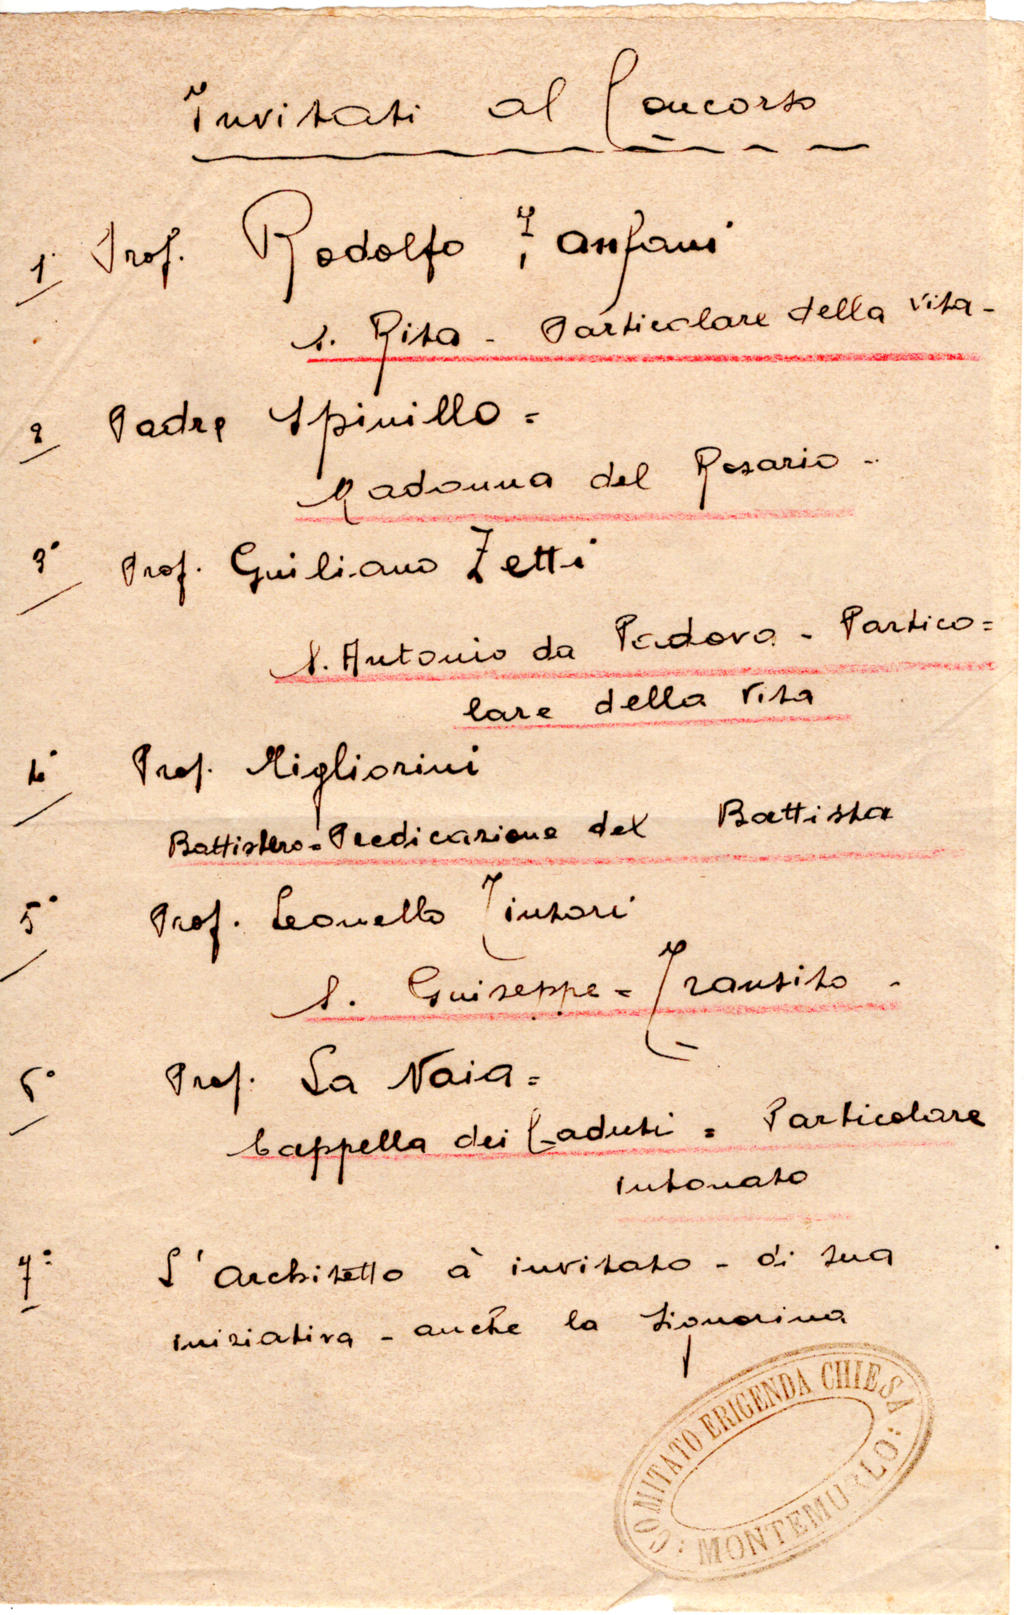 Invitati al Concorso
1° Prof. Rodolfo Fanfani
S. Rita - Particolare della vita -
2 Padre Spinillo =
Madonna del Rosario -
3° Prof. Guiliano Zetti
S. Antonio da Padova - Partico=
lare della vita
4° Prof. Migliorini
Battistero = Predicazione del Battista
5° Prof. Leonello Tintori
S. Guiseppe = Transito -
6° Prof. La Naia =
Cappella dei Caduti = Particolare
intonato
7° L'Architetto à invitato - di sua
iniziativa - anche la Signorina
COMITATO ERIGENDA CHIESA
MONTEMURLO